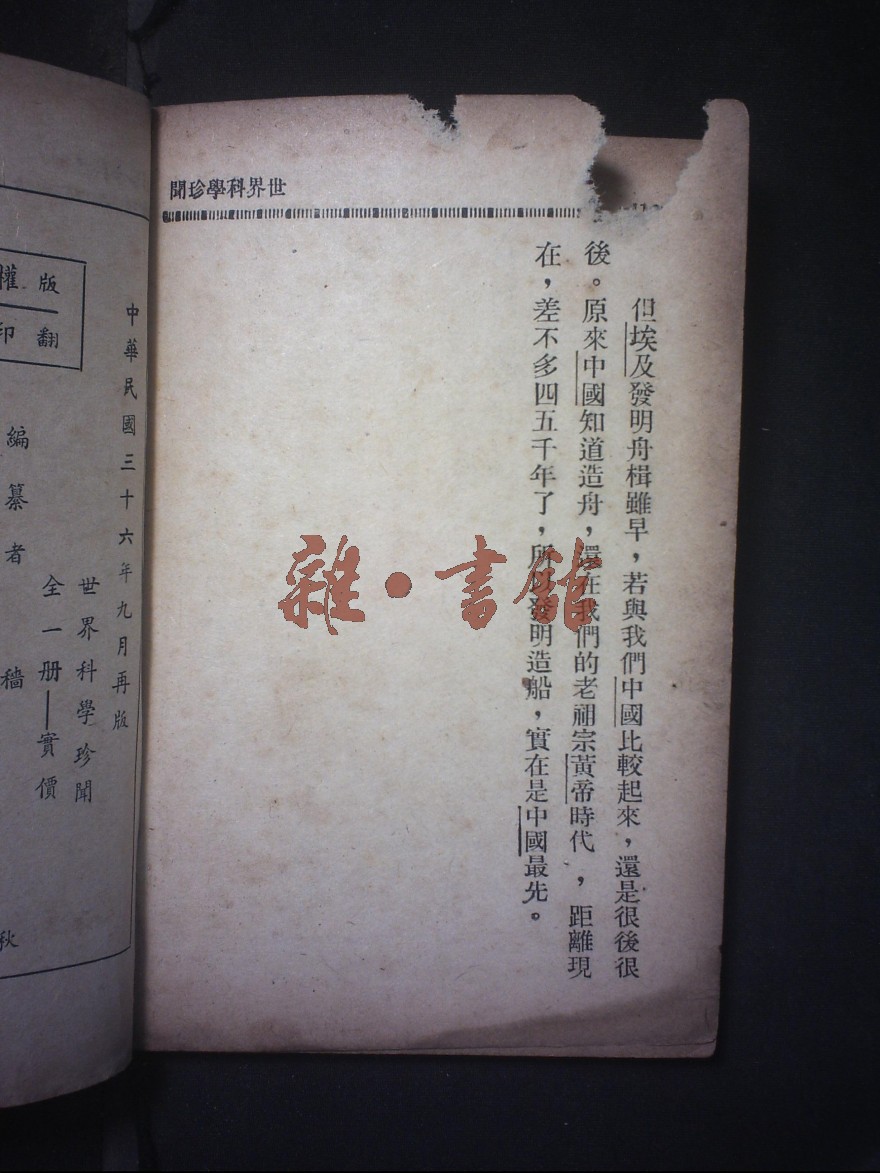 世界科學珍聞
但埃及發明舟楫雖早，若與我們中國比較起來，還是很後很
後。原來中國知道造舟，還在我們的老祖宗黃帝時代，距離現
在，差不多四五千年了，所以發明造船，實在是中國最先。
雜·書館
中華民國三十六年九月再版
世界科學珍聞
全一册—實價
編纂者 穡 秋
版權
翻印